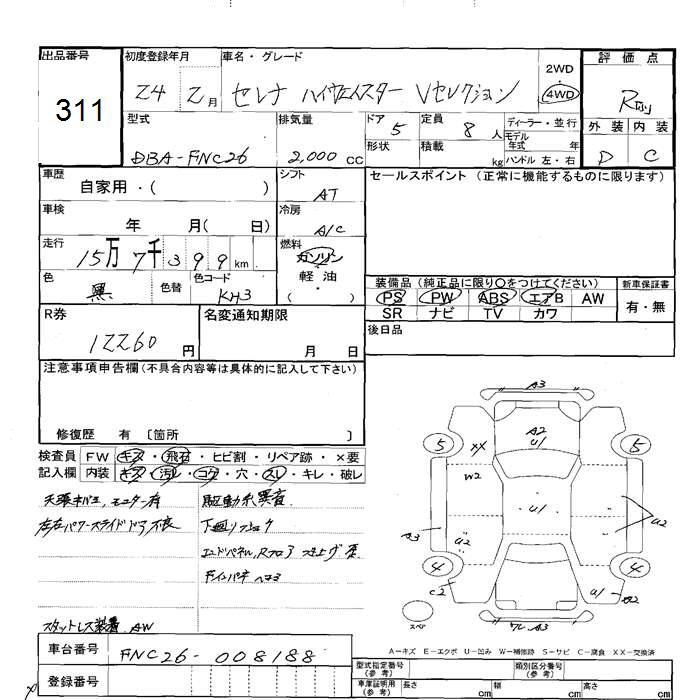 出品番号 初度登録年月 車名・グレード 評価点
311 24 2月 セレナ ハイウェイスター Vセレクション 2WD・4WD R
型式 排気量 ドア 5 定員 8人 ディーラー・並行
モデル年式 年
外装 内装
DBA-FNC26 2,000 CC 形状 積載 kg ハンドル 左・右 D C
車歴 自家用・( ) シフト AT セールスポイント (正常に機能するものに限ります)
車検 年 月( 日) 冷房 A/C
走行 15万7千399km 燃料 ガソリン・軽油・( )
色 黒 色替 色コード KH3
装備品 (純正品に限り○をつけてください) 新車保証書
PS PW ABS エアB AW 有・無
SR ナビ TV カワ
R券 12260円 名変通知期限 月 日
後日品
注意事項申告欄(不具合内容等は具体的に記入して下さい)
修復歴 有 〔箇所 〕
検査員 FW キズ・飛石・ヒビ割・リペア跡・×要
記入欄 内装 キズ・汚レ・コゲ・穴・スレ・キレ・破レ
天張キバミ、モニター有 駆動系異音
左右パワースライドドア不良 下廻りサビ
エンドパネル、Rフロア
スタットレス装着 AW
車台番号 FNC26-008188
登録番号
A3
A2
U1
5 XX 5
W2
U1
A3 U2 U2
4 4
C2 U1 B2
スペア A3
A-キズ E-エクボ U-凹み W-補修跡 S-サビ C-腐食 XX-交換済
型式指定番号(参考) 類別区分番号(参考)
車庫証明用(参考) 長さ cm 幅 cm 高さ cm